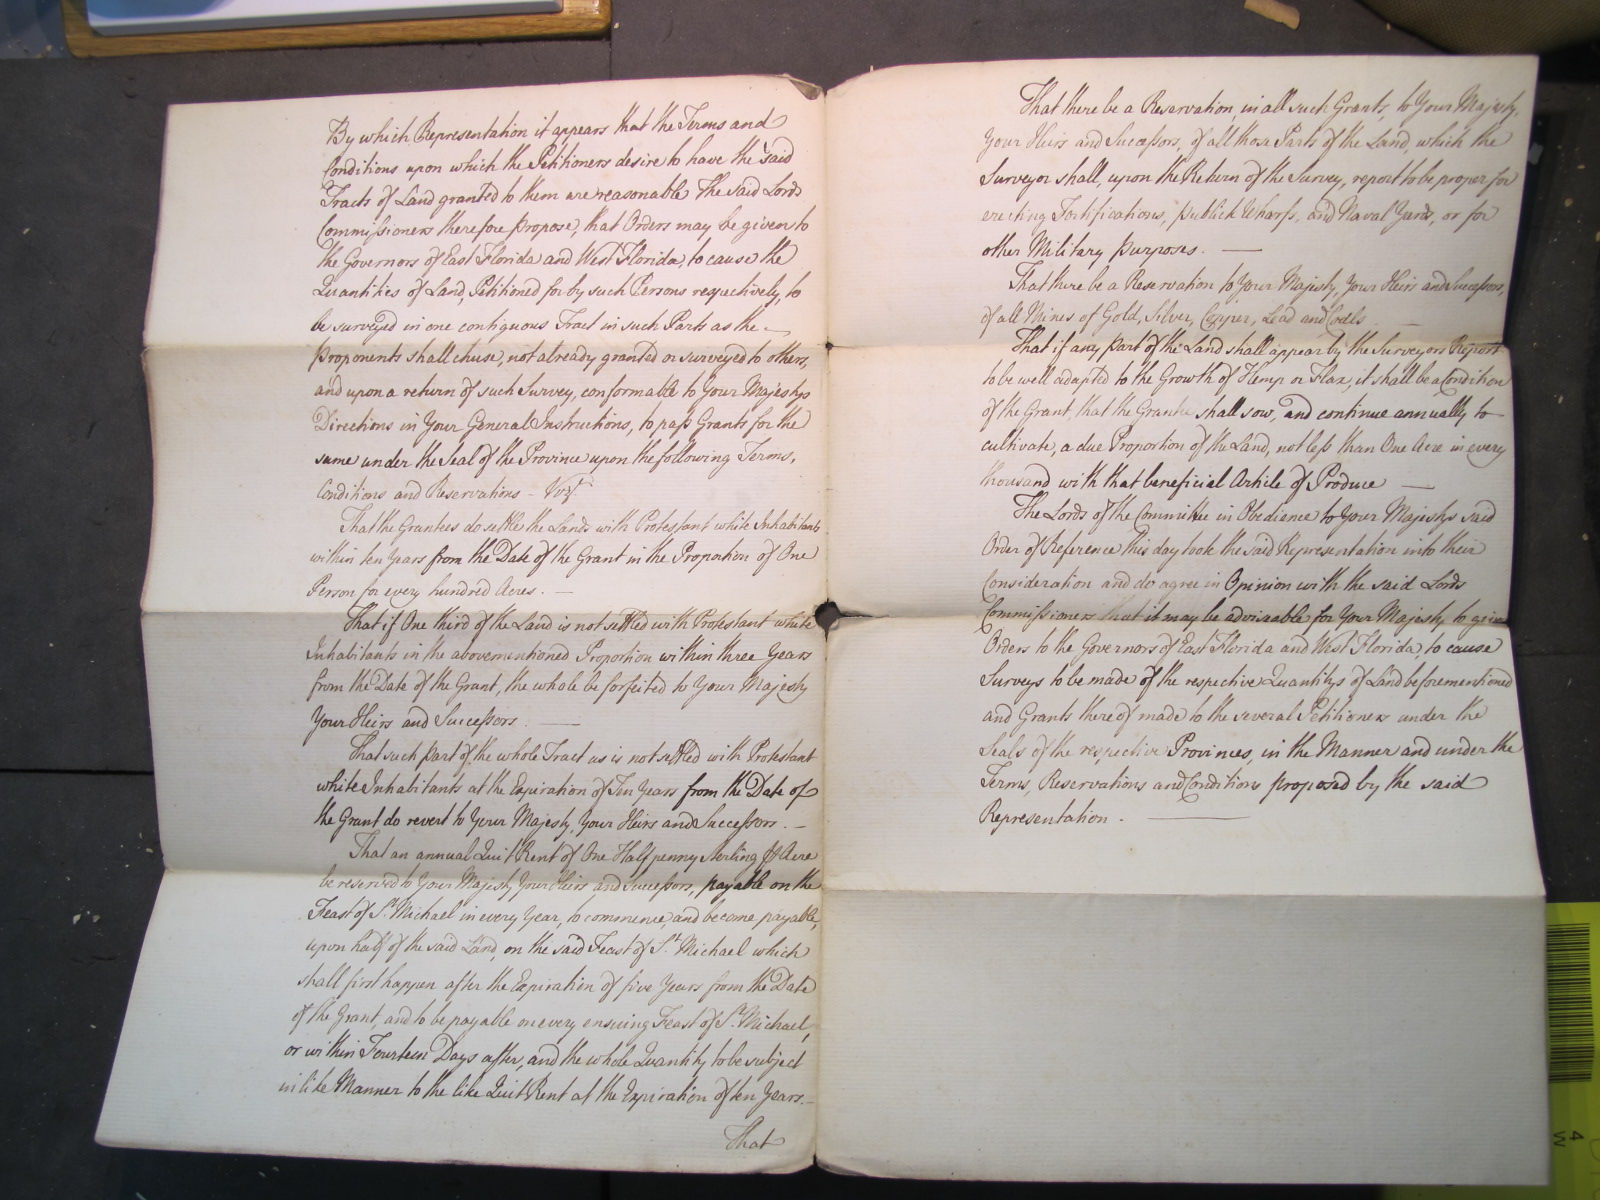 By which Representation it appears that the Terms and
Conditions upon which the Petitioners desire to have the said
Tracts of Land granted to them are reasonable The said Lords
Commissioners therefore propose, that Orders may be given to
the Governors of East Florida and West Florida, to cause the
Quantities of Land, Petitioned for by such Persons respectively, to
be surveyed in one contiguous Tract in such Parts as the
proponents shall chuse, not already granted or surveyed to others,
and upon a return of such Survey, conformable to Your Majestys
Directions in Your General Instructions, to pass Grants for the
same under the Seal of the Province upon the following Terms,
Conditions and Reservations - Vizt.
That the Grantees do settle the Lands with Protestant white Inhabitants
within ten Years from the Date of the Grant in the Proportion of One
Person for every hundred Acres. —
That if One third of the Land is not settled with Protestant white
Inhabitants in the abovementioned Proportion within three Years
from the Date of the Grant, the whole be forfeited to Your Majesty
Your Heirs and Successors. —
That such part of the whole Tract as is not settled with Protestant
white Inhabitants at the Expiration of Ten Years from the Date of
the Grant do revert to Your Majesty, Your Heirs and Successors. —
That an annual Quit Rent of One Halfpenny sterling ⅌ Acre
be reserved to Your Majesty Your Heirs and Successors, payable on the
Feast of St. Michael in every Year, to commence, and become payable,
upon half of the said Land, on the said Feast of St. Michael which
shall first happen after the Expiration of five Years from the Date
of the Grant, and to be payable on every ensuing Feast of St. Michael,
or within Fourteen Days after, and the whole Quantity to be subject
in like Manner to the like Quit Rent at the Expiration of ten Years. —
That
That there be a Reservation, in all such Grants, to Your Majesty,
Your Heirs and Successors, of all those Parts of the Land, which the
Surveyor shall, upon the Return of the Survey, report to be proper for
erecting Fortifications, publick Wharfs, and Naval Yards, or for
other Military purposes. —
That there be a Reservation to Your Majesty, Your Heirs and Successors,
of all Mines of Gold, Silver, Copper, Lead and Coals —
That if any part of the Land shall appear by the Surveyors Report
to be well adapted to the Growth of Hemp or Flax, it shall be a Condition
of the Grant, that the Grantee shall sow, and continue annually to
cultivate, a due Proportion of the Land, not less than One Acre in every
thousand with that beneficial Article of Produce —
The Lords of the Committee in Obedience to Your Majestys said
Order of Reference this day took the said Representation into their
Consideration and do agree in Opinion with the said Lords
Commissioners that it may be adviseable for Your Majesty to give
Orders to the Governors of East Florida and West Florida, to cause
Surveys to be made of the respective Quantitys of Land beforementioned
and Grants thereof made to the several Petitioners under the
Seals of the respective Provinces, in the Manner and under the
Terms, Reservations and Conditions proposed by the said
Representation. —
4
W